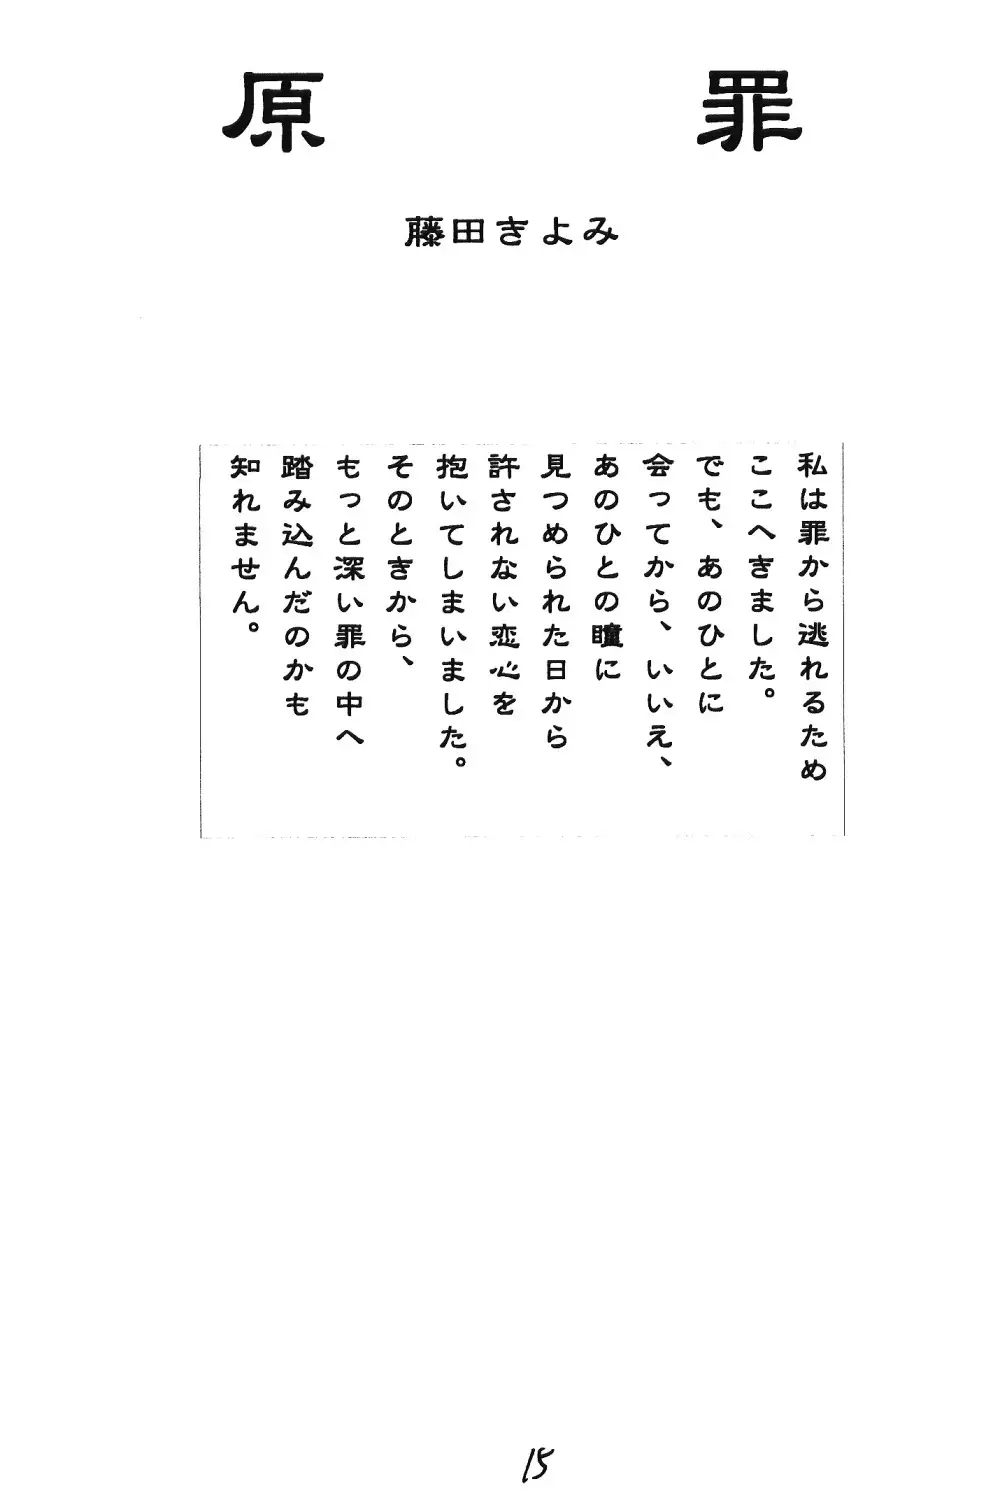 原罪
藤田きよみ
私は罪から逃れるため
ここへきました。
でも、あのひとに
会ってから、いいえ、
あのひとの瞳に
見つめられた日から
許されない恋心を
抱いてしまいました。
そのときから、
もっと深い罪の中へ
踏み込んだのかも
知れません。
15